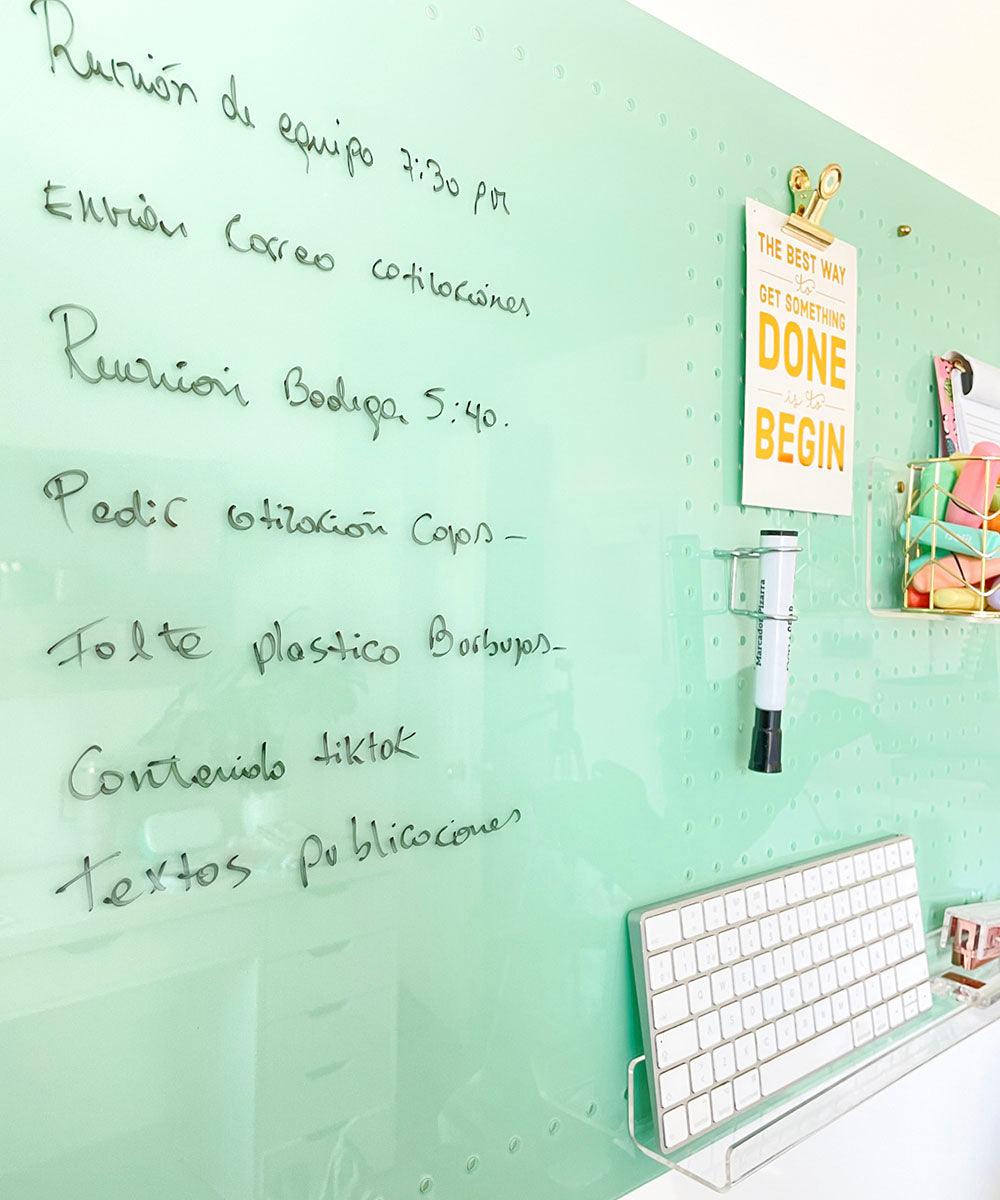 Reunión de equipo 7:30 pm
Envián Correo cotizaciónes
Reunión Bodega 5:40.
Pedir cotización Cajas –
Falte plastico Borbujas –
Contenido tiktok
textos publicaciones
THE BEST WAY
to
GET SOMETHING
DONE
is to
BEGIN
Marcador Pizarra